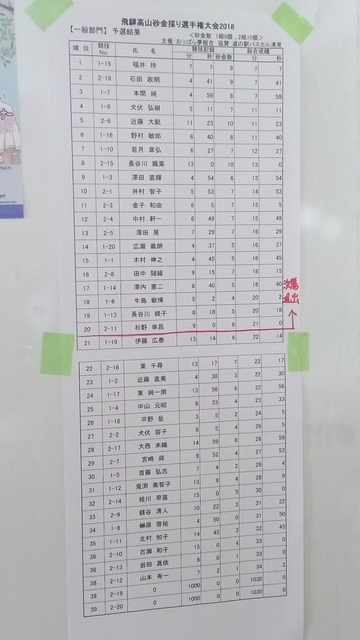 飛騨高山砂金採り選手権大会2018
【一般部門】予選結果
＜砂金数 1組9個，2組10個＞
主催 おっぱら夢組合 協賛 道の駅パスカル清見
順位 競技No. 氏名 競技記録 総合成績
分 秒 砂金数 分 秒
1 1-15 福井 持 7 7 9 7 7
2 2-18 石田 政明 4 41 9 7 41
3 1-7 本間 純 4 59 8 7 59
4 1-9 犬伏 弘樹 5 11 7 11 11
5 2-6 近藤 大航 11 23 10 11 23
6 1-16 野村 敏郎 8 40 8 11 40
7 1-10 若月 章弘 6 27 7 12 27
8 2-15 長谷川 颯葉 13 0 10 13 0
9 1-3 澤田 直輝 4 54 6 13 54
10 2-1 井村 智子 5 53 7 14 53
11 2-3 金子 和由 6 5 7 15 5
12 2-4 中村 軒一 6 49 7 15 49
13 2-5 澤田 晃 7 29 7 16 29
14 1-20 広瀬 義朗 4 37 5 16 37
15 1-1 木村 伸之 4 45 5 16 45
16 2-8 田中 随縁 9 15 7 18 15
17 1-14 澤内 憲二 6 40 5 18 40
18 1-6 牛島 敏博 5 2 4 20 2
19 1-13 長谷川 綾子 8 18 5 20 18
20 2-11 杉野 幸昌 9 0 6 21 0
21 1-19 伊藤 広泰 13 14 6 22 14
進出
22 2-16 東 千尋 13 17 7 22 17
23 1-2 近藤 直美 4 30 3 22 30
24 1-17 東 純一朗 13 56 6 22 56
25 1-4 中山 元昭 8 33 4 23 33
26 1-18 平野 岳 3 5 2 24 5
27 2-2 犬伏 容子
28 2-17 大西 未織 14 59 6 26 59
29 2-7 宮崎 舜 9 52 4 27 52
30 1-5 首藤 弘志 7 4 2 28 4
31 1-12 鬼渕 美智子 13 9 4 28 9
32 2-14 桂川 早苗 15 0 5 30 0
33 2-9 銭谷 清人 10 22 3 31 22
34 1-8 榊原 啓祐 4 50 0 31 50
35 1-11 北村 和子 14 45 3 32 45
36 2-10 古瀬 和子 15 0 4 33 0
36 2-13 岩田 真依
38 2-12 山本 有一 7 2 1 34 2
39 2-19 0 1000 0 0 1030 0
39 2-20 0 1000 0 0 1030 0